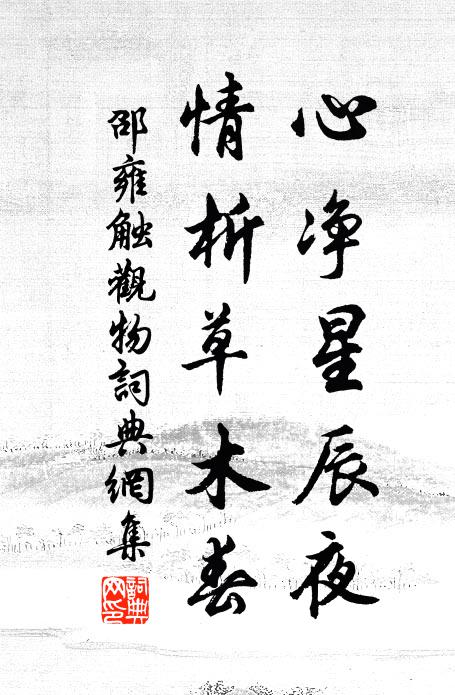 心净星辰夜
情析草木春
邵雍触觀物詞典網集
詞典
网印